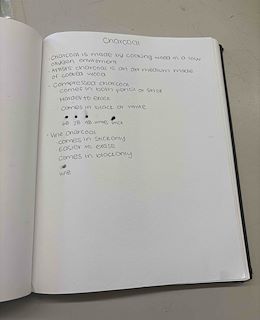 Charcoal
Charcoal is made by cooking wood in a low
oxygen enviroment
Artists charcoal is an art medium made
of cooked wood
- Compressed charcoal
comes in both pencil or stick
Harder to erase
comes in black or white
6B 2B 4B white, stick
- Vine charcoal
comes in stick only
Easier to erase
comes in black only
vine